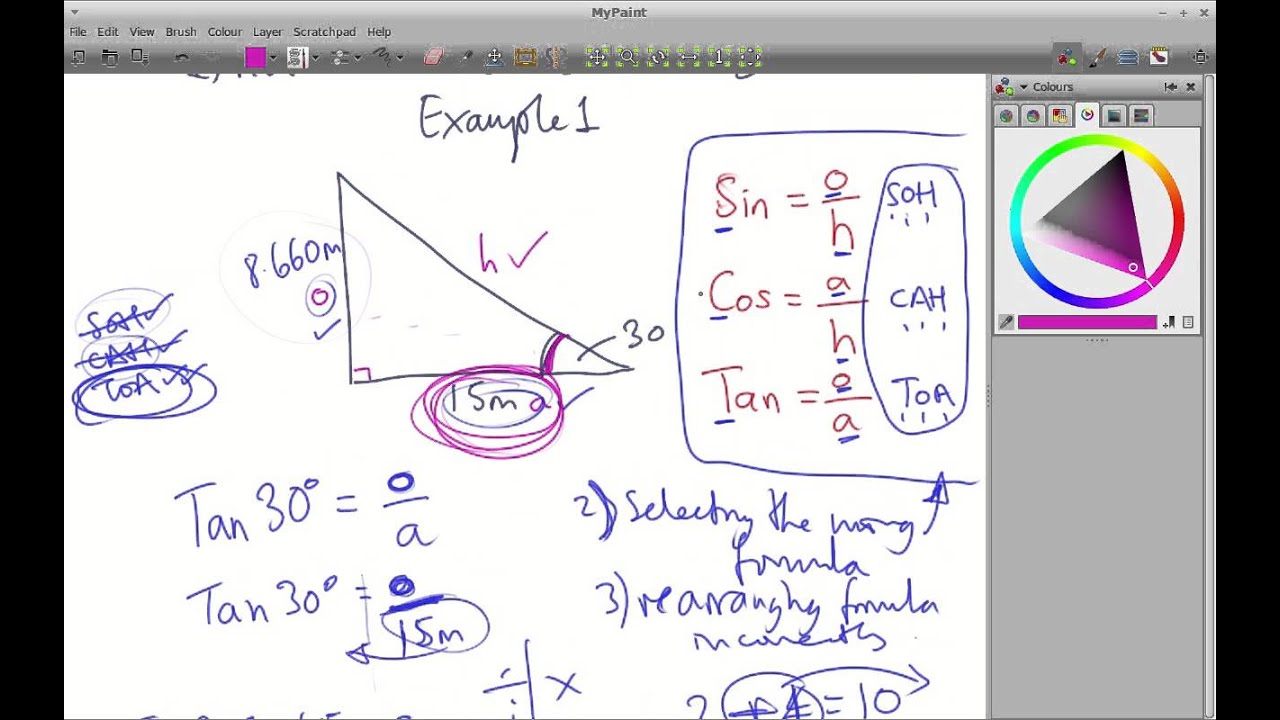 MyPaint
File Edit View Brush Colour Layer Scratchpad Help
Colours
Example 1
8.660m
o
h
30
15m a
SOH
CAH
TOA
Sin = o/h SOH
Cos = a/h CAH
Tan = o/a TOA
Tan 30° = o/a
Tan 30° = o/15m
÷ x
2) Selecting the wrong
formula
3) rearranging formula
incorrectly
= 10